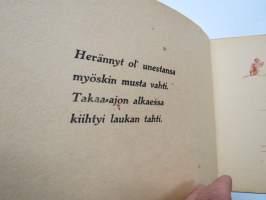 Herännyt ol' unestansa
myöskin musta vahti.
Takaa-ajon alkaessa
kiihtyi laukan tahti.